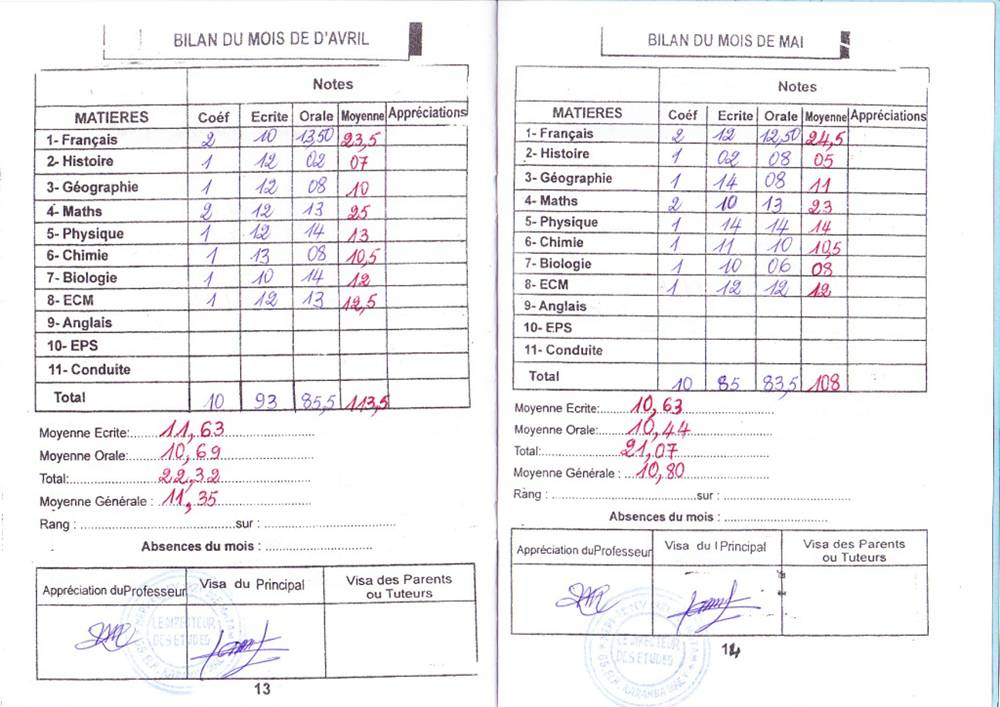 BILAN DU MOIS DE D'AVRIL
Notes
MATIERES Coéf Ecrite Orale Moyenne Appréciations
1- Français 2 10 13,50 23,5
2- Histoire 1 12 02 07
3- Géographie 1 12 08 10
4- Maths 2 12 13 25
5- Physique 1 12 14 13
6- Chimie 1 13 08 10,5
7- Biologie 1 10 14 12
8- ECM 1 12 13 12,5
9- Anglais
10- EPS
11- Conduite
Total 10 93 85,5 113,5
Moyenne Ecrite: 11,63
Moyenne Orale: 10,69
Total: 22,32
Moyenne Générale : 11,35
Rang : sur :
Absences du mois :
Appréciation du Professeur Visa du Principal Visa des Parents ou Tuteurs
LE DIRECTEUR
DES ETUDES
13
BILAN DU MOIS DE MAI
Notes
MATIERES Coéf Ecrite Orale Moyenne Appréciations
1- Français 2 12 12,50 24,5
2- Histoire 1 02 08 05
3- Géographie 1 14 08 11
4- Maths 2 10 13 23
5- Physique 1 14 14 14
6- Chimie 1 11 10 10,5
7- Biologie 1 10 06 08
8- ECM 1 12 12 12
9- Anglais
10- EPS
11- Conduite
Total 10 85 83,5 108
Moyenne Ecrite: 10,63
Moyenne Orale: 10,44
Total: 21,07
Moyenne Générale : 10,80
Rang : sur :
Absences du mois :
Appréciation du Professeur Visa du l Principal Visa des Parents
ou Tuteurs
LE DIRECTEUR
DES ETUDES
14